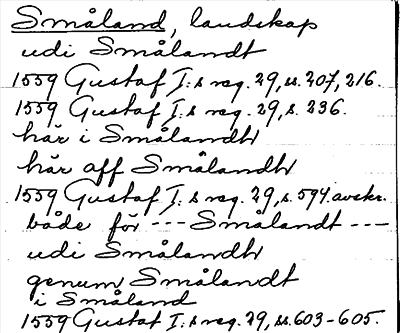 Småland, landskap
udi Smålandt
1559 Gustaf I:s reg. 29, ss. 207, 216.
1559 Gustaf I:s reg. 29, s. 236.
här i Smålandh
här aff Smålandh
1559 Gustaf I:s reg. 29, s. 594 avskr.
både för --- Smålandt ---
udi Smålandh
genum Smålandt
i Småland
1559 Gustaf I:s reg. 29, ss. 603-605.